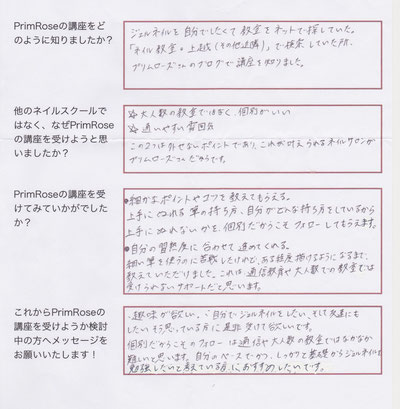 PrimRoseの講座をど
のように知りましたか?
ジェルネイルを自分でしたくて教室をネットで探していた。
「ネイル教室。上越(その他近隣)」で検索していた所、
プリムローズさんのブログで講座を知りました。
他のネイルスクール
ではなく、なぜPrimRose
の講座を受けようと思
いましたか?
☆大人数の教室ではなく、個別がいい
☆通いやすい雰囲気
この2つは外せないポイントであり、これが叶えられるネイルサロンが
プリムローズさんだからです。
PrimRoseの講座を受
けてみていかがでした
か?
●細かなポイントやコツを教えてもらえる。
上手にぬれる筆の持ち方、自分がどんな持ち方をしているから
上手にぬれないかを、個別だからこそフォローしてもらえます。
●自分の習熟度に合わせて進めてくれる。
細い筆を使うのに苦戦したけれど、ある程度描けるようになるまで、
教えていただけました。これは通信教育や大人数での教室では
受けられないサポートだと思います。
これからPrimRoseの
講座を受けようか検討
中の方へメッセージを
お願いいたします!
趣味が欲しい、自分でジェルネイルをしたい、そして友達にも
したいそう思っている方に是非受けて欲しいです。
個別だからこそのフォローは通信や大人数の教室ではなかなか
難しいと思います。自分のペースでかつ、しっかりと基礎からジェルネイルを
勉強したいと考えている方におすすめしたいです。